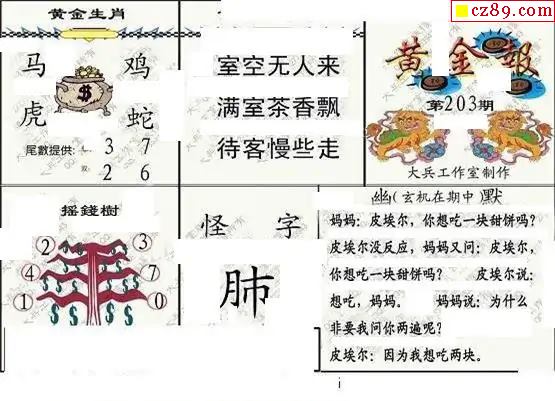 cz89.com
黄金生肖
马 鸡
虎 蛇
尾數提供: 单 3 7
双 2 6
室空无人来
满室茶香飘
待客慢些走
黄金報
第203期
大兵工作室制作
摇錢樹
2 3
4 7
1 0
怪 字
肺
幽(玄机在期中 默
妈妈：皮埃尔，你想吃一块甜饼吗？
皮埃尔没反应，妈妈又问：皮埃尔，
你想吃一块甜饼吗？ 皮埃尔说：
想吃，妈妈。 妈妈说：为什么
非要我问你两遍呢？
皮埃尔：因为我想吃两块。
i